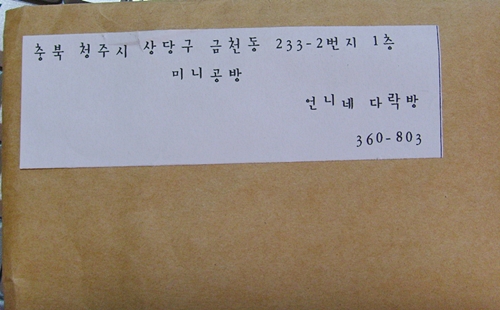 충북 청주시 상당구 금천동 233-2번지 1층
미니공방
언니네 다락방
360-803